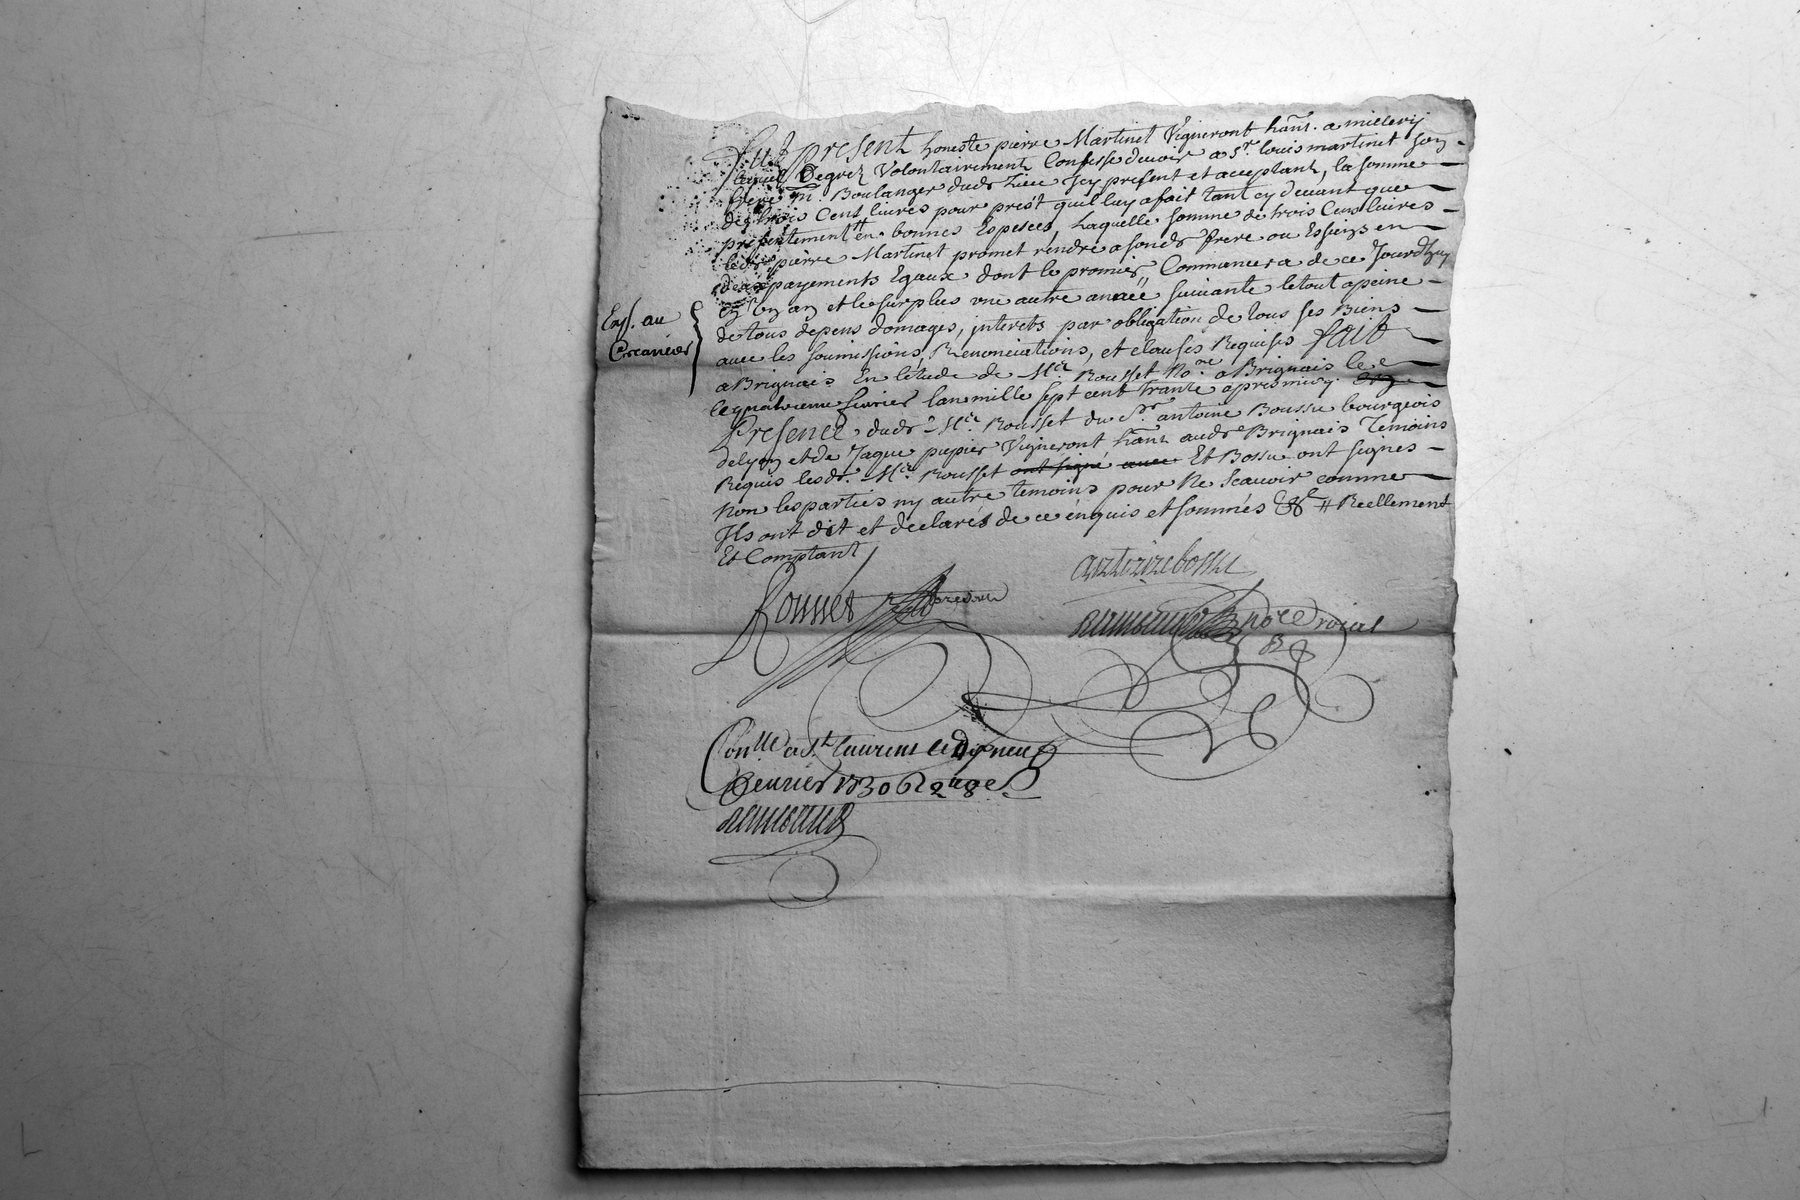 Fut present honeste pierre Martinet Vigneront hant. a millery
lequel Degrez Volontairement Confesse devoir a Sr. louis martinet son
frere Me. Boulanger dudt Lieu Jcy present et acceptant, la somme
de trois Cent livres pour prest quil luy a fait tant cy devant que
presentement en bonnes Especes, Laquelle somme de trois Cens livres
ledt pierre Martinet promet rendre a sondt frere ou Es siens en
deux payements Egaux dont le premier, Commancera de ce Jourdhuy
en Un an et le surplus une autre année suivante le tout a peine
de tous depens domages, interets par obligation de tous ses Biens
avec les soumissions, Renonciations, et clauses Requises fait
a Brignais En l'étude de Me. Rousset Nore. a Brignais le
quatrieme fevrier lan mille sept cent trante apres midy en
Presence dudt Me. Rousset du Sr antoine Boussu bourgeois
de lyon et de Jaque pupier Vigneront hant audt Brignais Temoins
Requis lesdt. Me. Rousset ont signé avec Et Bossu ont signes
Non les parties ny autre temoins pour Ne Scavoir comme
Ils ont dit et declarés de ce enquis et sommés # Reellement
Et Comptant
Exp. au
Creancier
antoine bossu
nore Roial
Conlle a st laurent le Dixneuf
fevrier 1730